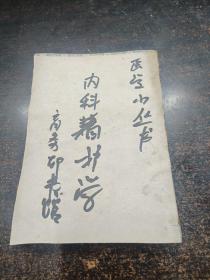 医学小丛书
内科看护学
商务印书馆